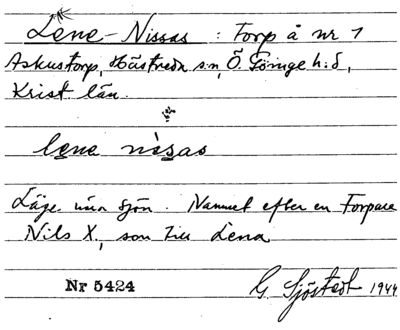 Lene-Nissas : Torp å nr 1
Askustorp, Hästveda s:n, Ö. Göinge h:d,
Krist. län.
lena nissas
Läge nära sjön. Namnet efter en Torpare
Nils X., son till Lena
Nr 5424 G. Sjöstedt 1944